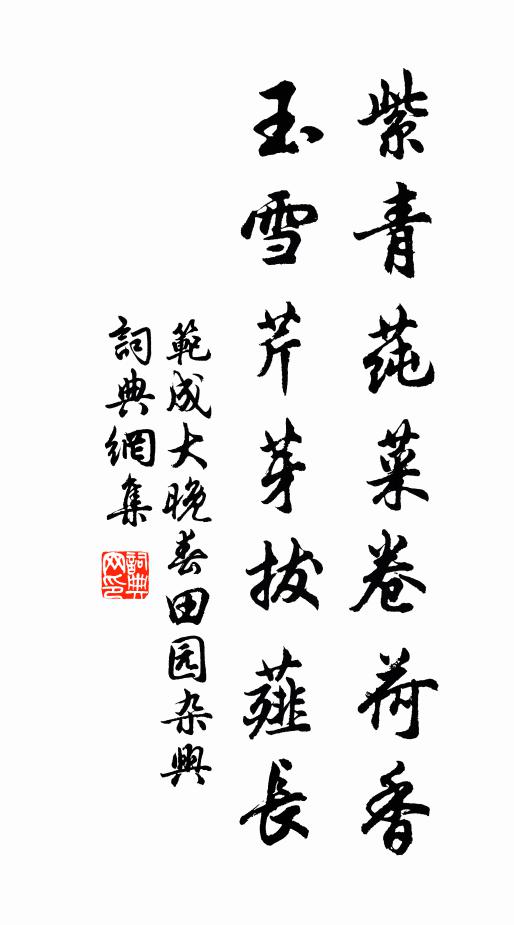 紫青莼菜卷荷香
玉雪芹芽拔薤長
範成大晚春田园杂興
詞典網集
詞典网印